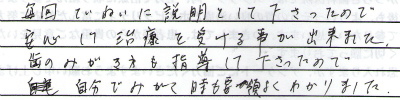 毎回ていねいに説明して下さったので
安心して治療を受ける事が出来ました。
歯のみがき方も指導して下さったので
自分でみがく時も要領よくわかりました。